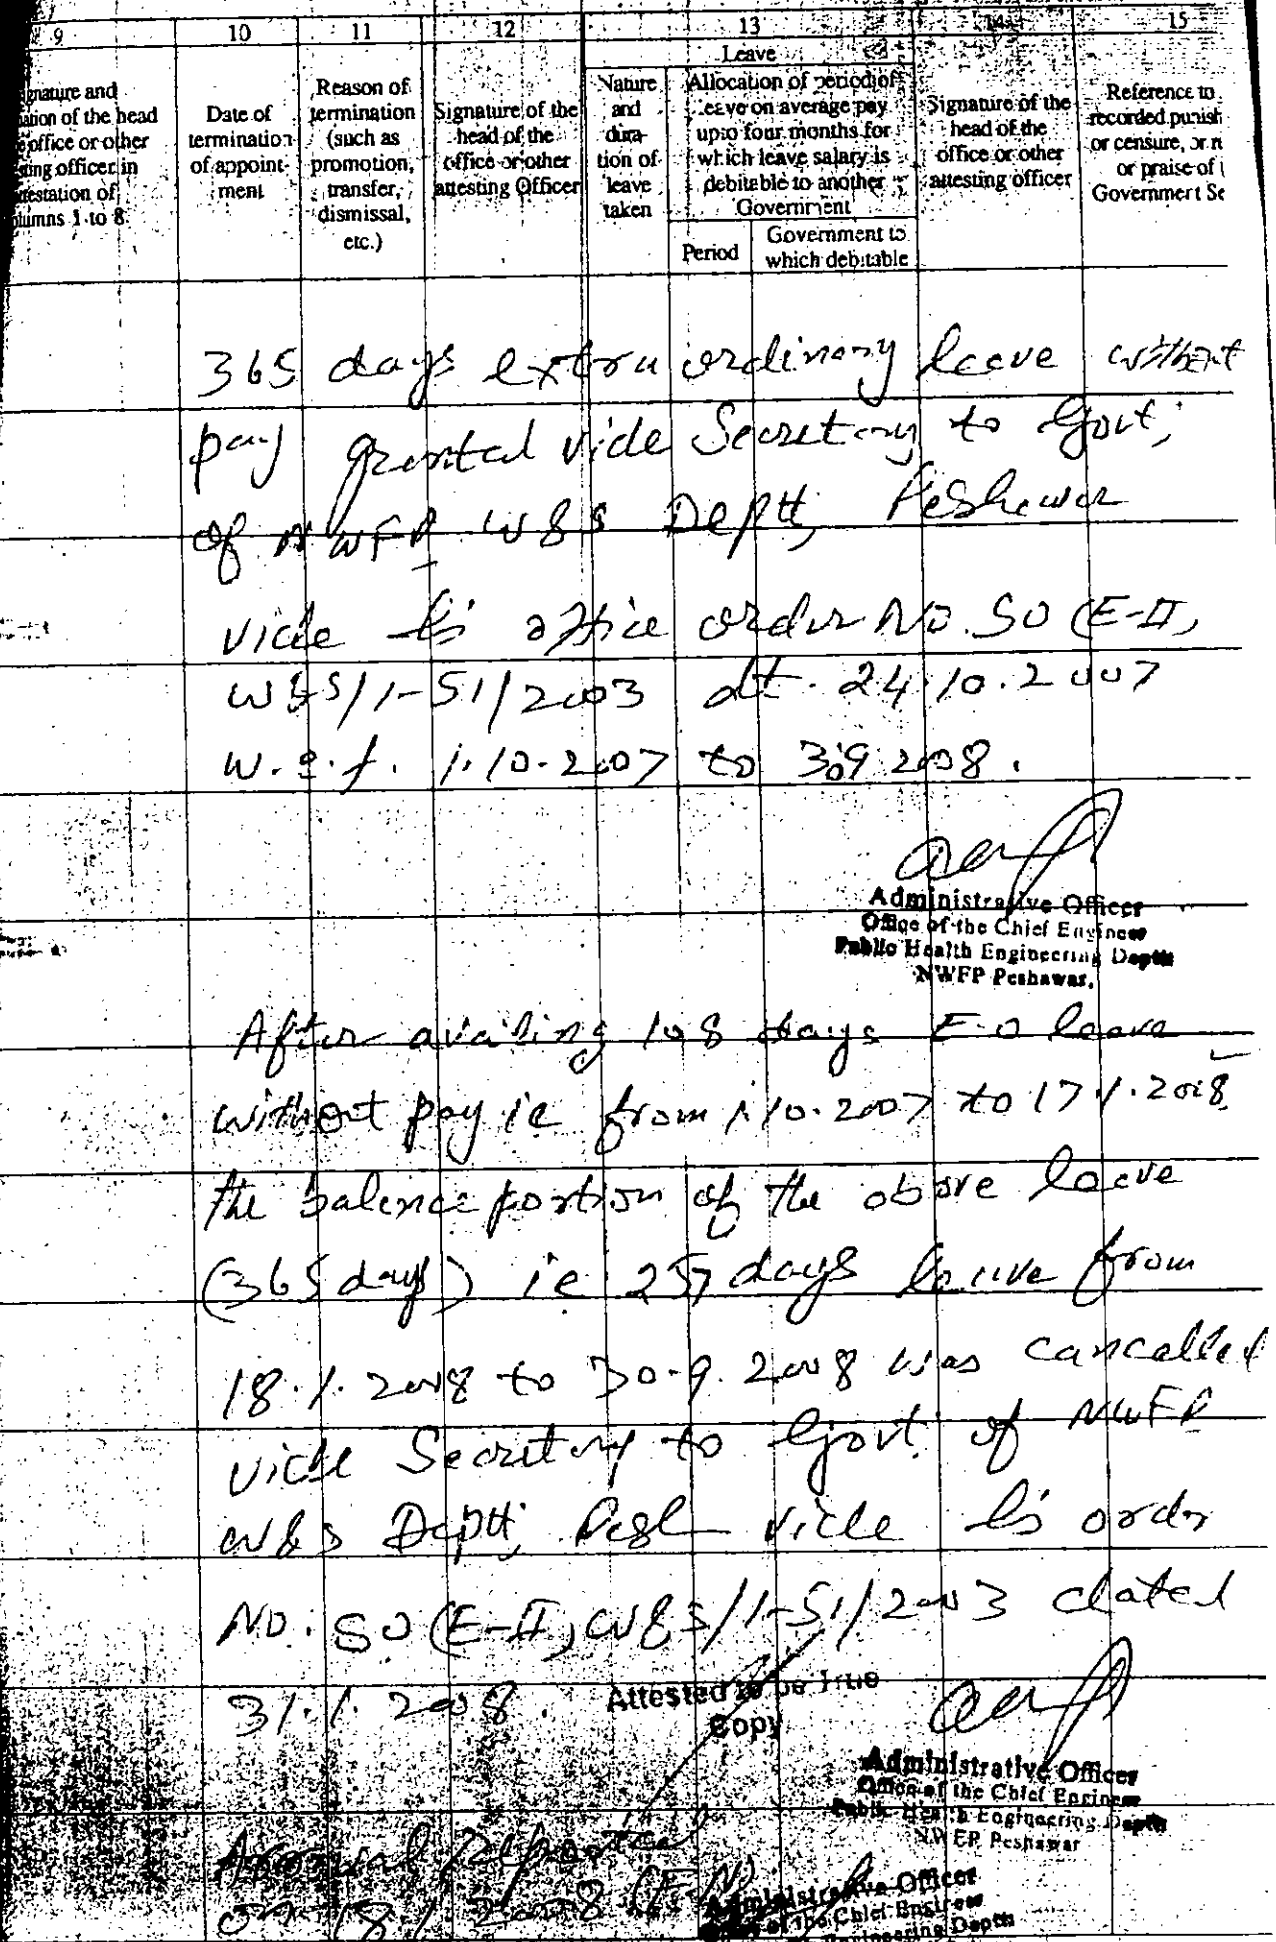 9 10 11 12 13 14 15
Leave
gnature and
ation of the head
e office or other
sting officer in
testation of
olumns 1 to 8.
Date of
termination
of appoint-
ment
Reason of
termination
(such as
promotion,
transfer,
dismissal,
etc.)
Signature of the
head of the
office or other
attesting Officer
Nature
and
dura-
tion of
leave
taken
Allocation of period of
leave on average pay
upto four months for
which leave salary is
debitable to another
Government
Period
Government to
which debitable
Signature of the
head of the
office or other
attesting officer
Reference to
recorded punish
or censure, or
or praise of
Government Se
365 days extra ordinary leave without
pay granted vide Secretary to Govt;
of NWFP W&S Deptt; Peshawar
vide his office order No. SO (E-II)
W&S/1-51/2003 dt. 24.10.2007
w.e.f. 1.10.2007 to 30.9.2008.
Administrative Officer
Office of the Chief Engineer
Public Health Engineering Deptt
NWFP Peshawar.
After availing 108 days E.O leave
without pay ie from 1.10.2007 to 17.1.2008
the balance portion of the above leave
(365 days) ie 257 days leave from
18.1.2008 to 30.9.2008 was cancelled
vide Secretary to Govt. of NWFP
W&S Deptt; Pesh vide his order
No. SO (E-II) W&S/1-51/2003 dated
31.1.2008.
Attested to be True
Copy
Administrative Officer
Office of the Chief Engineer
Public Health Engineering Deptt
NWFP Peshawar
Arrival
on 18.1.2008 (F.N)
Administrative Officer
of the Chief Engineer
Engineering Deptt